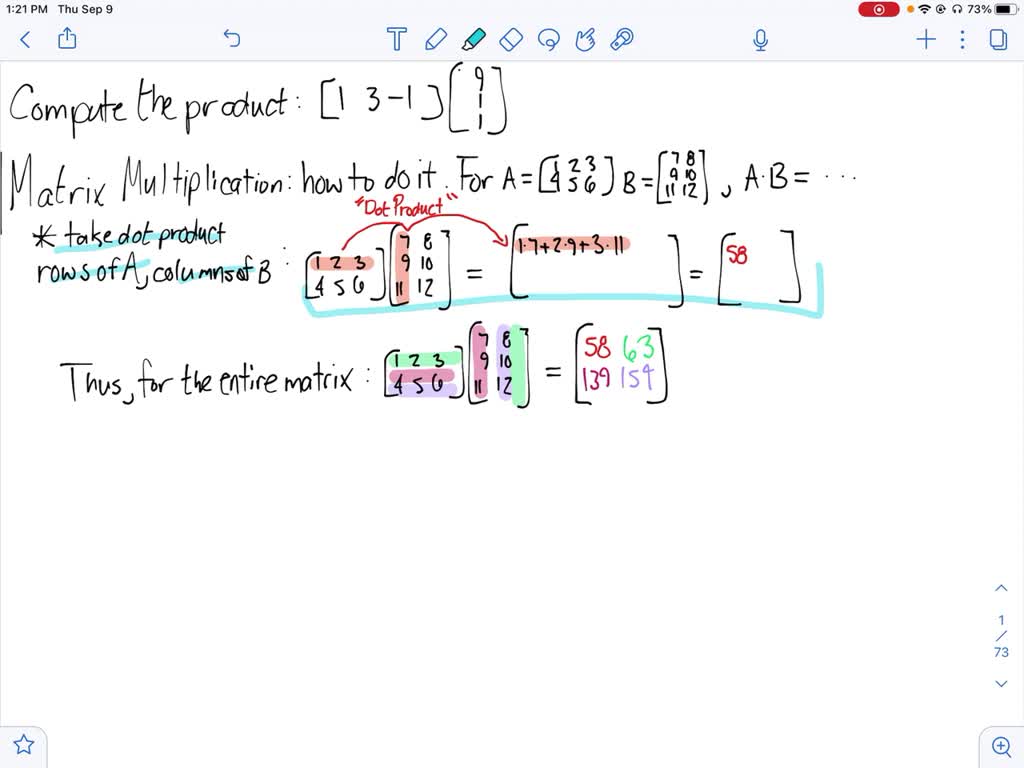 1:21 PM Thu Sep 9 73%
Compute the product: [1 3 -1] [9 1 1]
Matrix Multiplication: how to do it. For A = [1 2 3 4 5 6] B = [7 8 9 10 11 12], A·B = ...
"Dot Product"
* take dot product
rows of A, columns of B : [1 2 3 4 5 6] [7 8 9 10 11 12] = [1·7+2·9+3·11] = [58]
Thus, for the entire matrix: [1 2 3 4 5 6] [7 8 9 10 11 12] = [58 63 139 154]
1
/
73